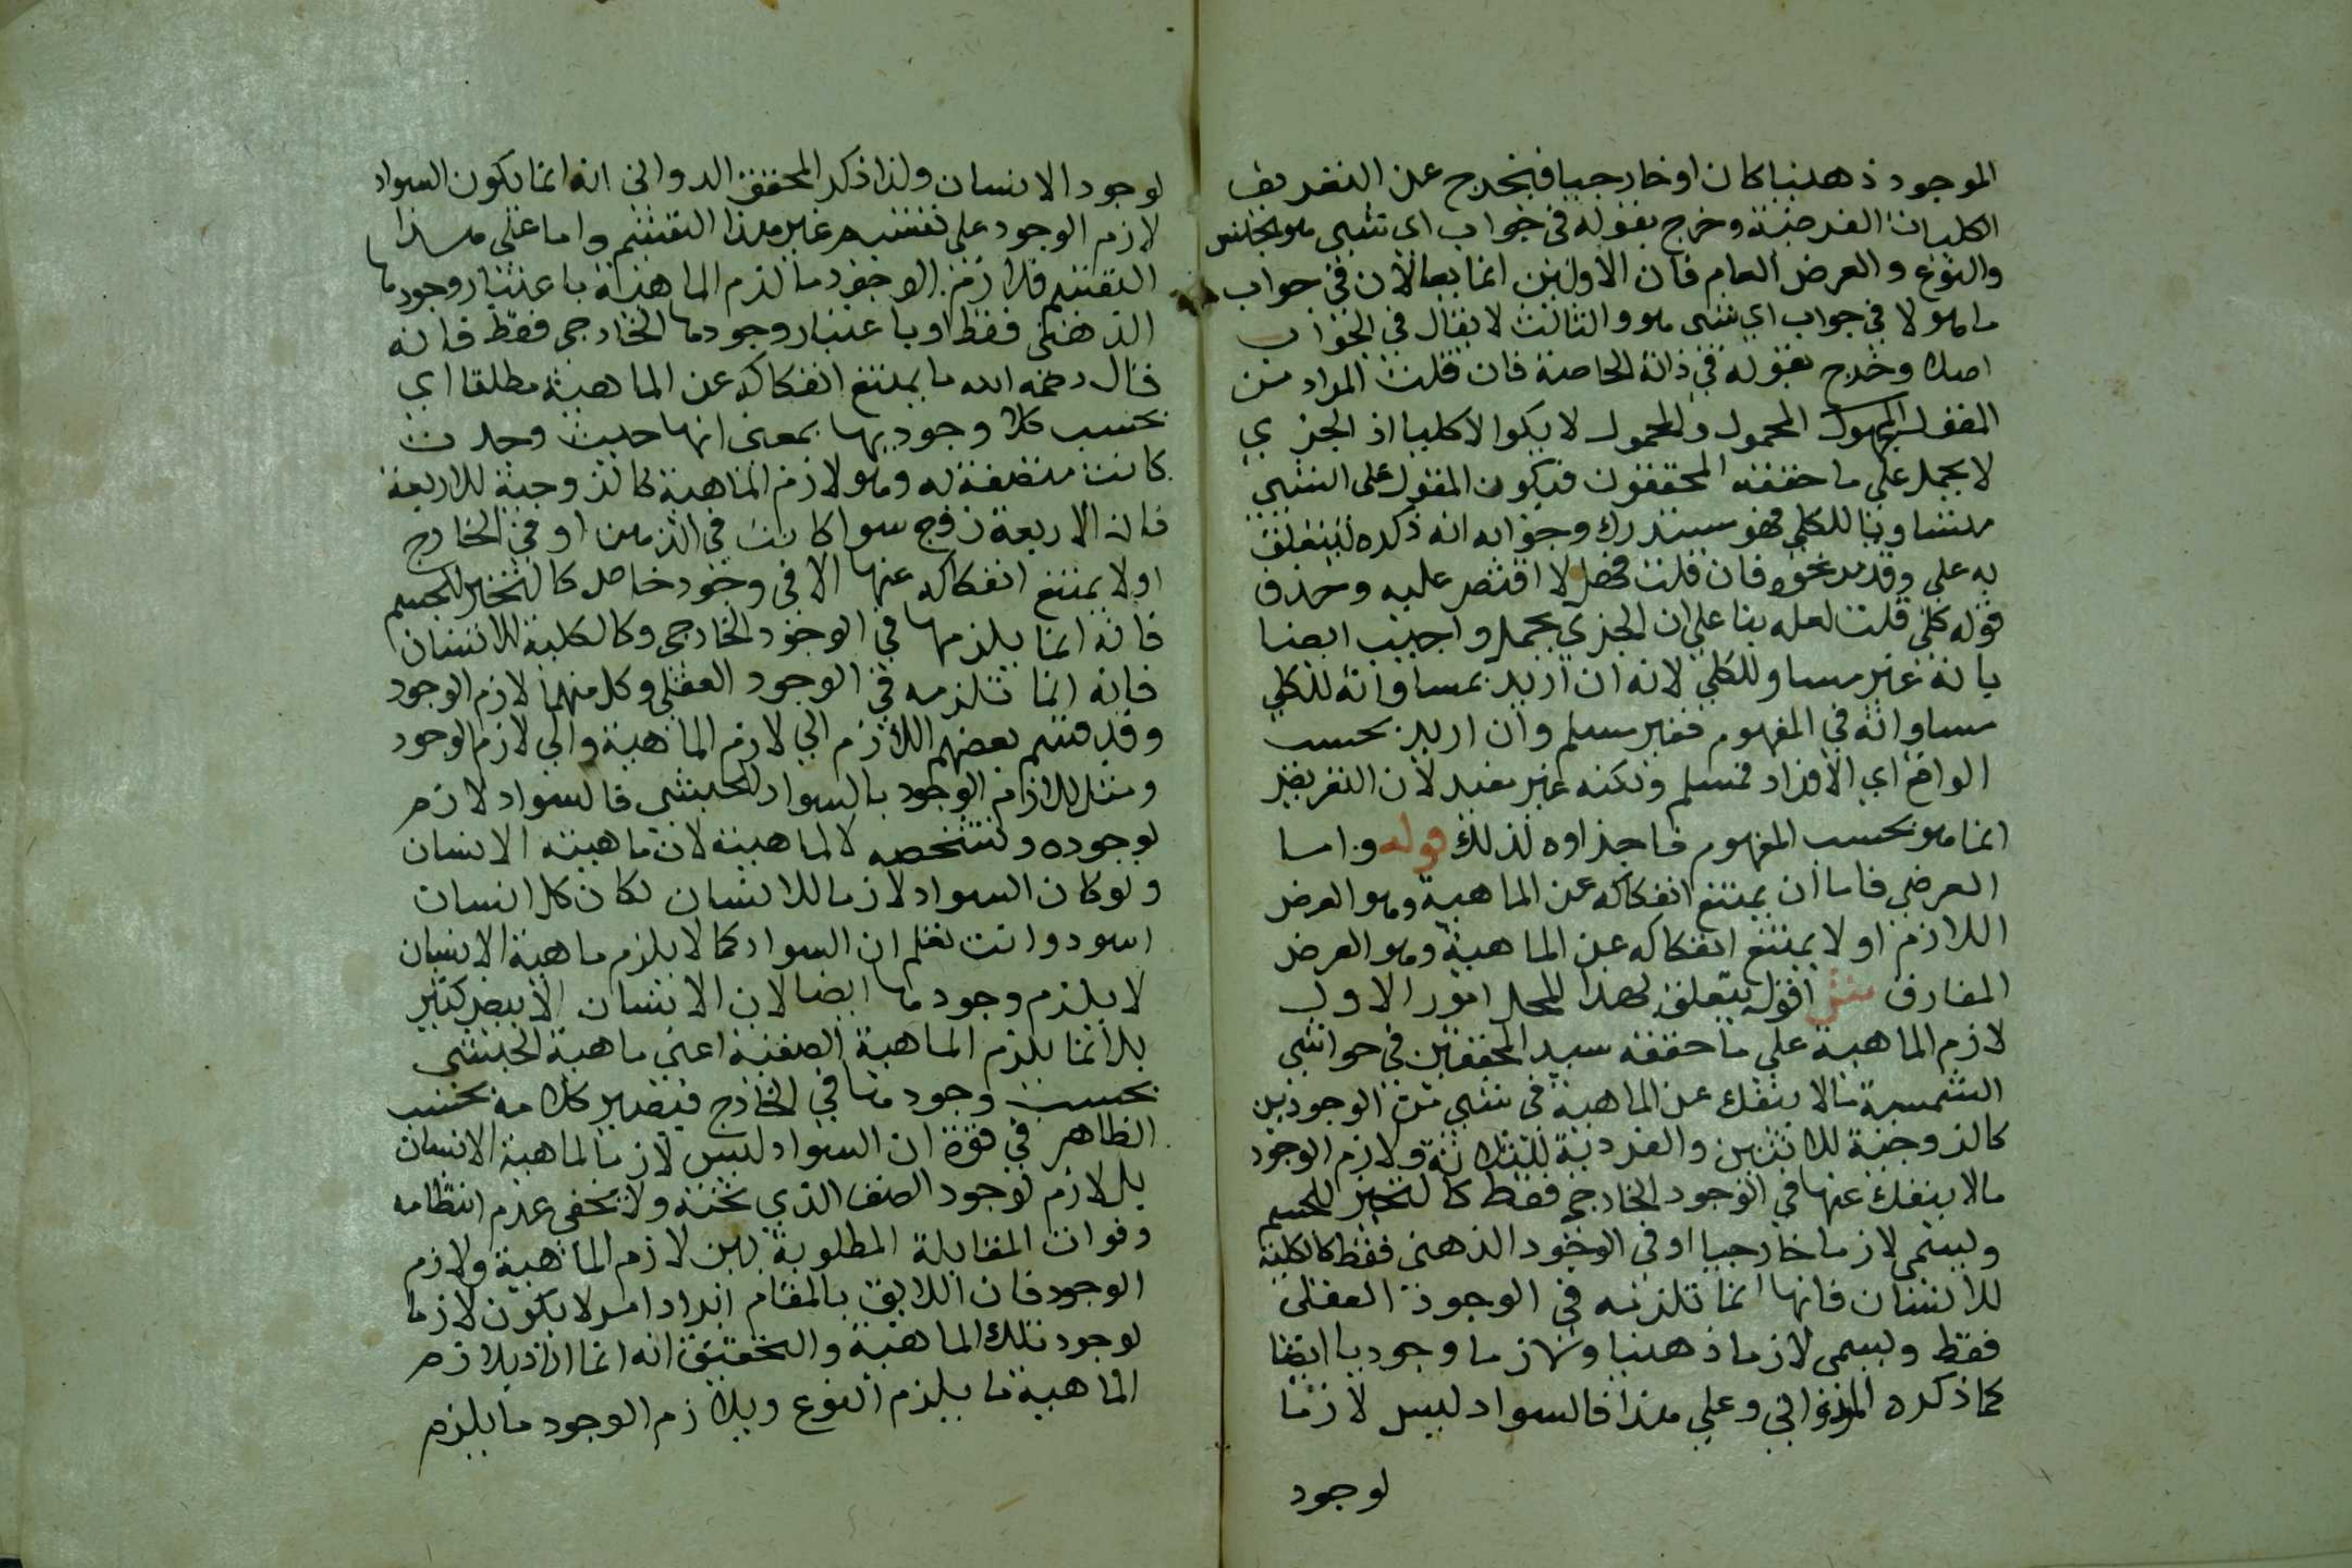 الموجود ذهنيا كان او خارجيا فيخرج عن التعريف
الكليات الفرضية وخرج بقوله في جواب اي شيء هو الجنس
والنوع والعرض العام فان الاولين انما يقالان في جواب
ما هو لا في جواب اي شيء هو والثالث لا يقال في الجواب
اصلا وخرج بقوله في ذاته الخاصة فان قلت المراد من
المقول المحمول والمحمول لا يكوا الا كليا اذ الجزي
لا يحمل على ما حققه المحققون فيكون المقول على الشيء
مساويا للكلي فهو مستدرك وجوابه انه ذكره ليتعلق
به على وقد مر نحوه فان قلت فهلا اقتصر عليه وحذف
قوله كلي قلت لعله بنا على ان الجزي يحمل واجيب ايضا
بانه غير مساو للكلي لانه ان اريد بمساواته للكلي
مساواته في المفهوم فغير مسلم وان اريد بحسب
الواقع اي الافراد فمسلم ولكنه غير مفيد لان التعريف
انما هو بحسب المفهوم فاجزاوه لذلك قوله واما
العرضي فاما ان يمتنع انفكاكه عن الماهية وهو العرض
اللازم او لا يمتنع انفكاكه عن الماهية وهو العرض
المفارق اقول يتعلق بهذا المحل امور الاول
لازم الماهية على ما حققه سيد المحققين في حواشي
الشمسية ما لا ينفك عن الماهية في شيء من الوجودين
كالزوجية للاثنين والفردية للثلاثة ولازم الوجود
ما لا ينفك عنها في الوجود الخارجي فقط كالتحيز للجسم
ويسمى لازما خارجيا او في الوجود الذهني فقط كالكلية
للانسان فانها انما تلزمه في الوجود العقلي
فقط ويسمى لازما ذهنيا ولازما وجوديا ايضا
كما ذكره الدواني وعلى هذا فالسواد ليس لازما
لوجود
لوجود الانسان ولذا ذكر المحقق الدواني انه انما يكون السواد
لازم الوجود على تفسير غير هذا التقسيم واما على هذا
التقسيم فلازم الوجود ما لزم الماهية باعتبار وجودها
الذهني فقط او باعتبار وجودها الخارجي فقط فانه
قال رحمه الله ما يمتنع انفكاكه عن الماهية مطلقا اي
بحسب كلا وجوديها بمعنى انها حيث وجدت
كانت متصفة به وهو لازم الماهية كالزوجية للاربعة
فان الاربعة زوج سوا كانت في الذهن او في الخارج
او لا يمتنع انفكاكه عنها الا في وجود خاص كالتحيز للجسم
فانه انما يلزمها في الوجود الخارجي وكالكلية للانسان
فانه انما تلزمه في الوجود العقلي وكل منهما لازم الوجود
وقد قسم بعضهم اللازم الى لازم الماهية والى لازم الوجود
ومثل للازم الوجود بالسواد للحبشي فالسواد لازم
لوجوده وتشخصه لا لماهيته لان ماهيته الانسان
ولو كان السواد لازما للانسان لكان كل انسان
اسود وانت تعلم ان السواد كما لا يلزم ماهية الانسان
لا يلزم وجودها ايضا لان الانسان الابيض كثير
بل انما يلزم الماهية الصنفية اعني ماهية الحبشي
بحسب وجودها في الخارج فيصير كلامه بحسب
الظاهر في قوة ان السواد ليس لازما لماهية الانسان
بل لازم لوجود الصنف الذي تحته ولا يخفى عدم انتظامه
وفوات المقابلة المطلوبة بين لازم الماهية ولازم
الوجود فان اللايق بالمقام ايراد امر لا يكون لازما
لوجود تلك الماهية والتحقيق انه انما اراد بلازم
الماهية ما يلزم النوع وبلازم الوجود ما يلزم